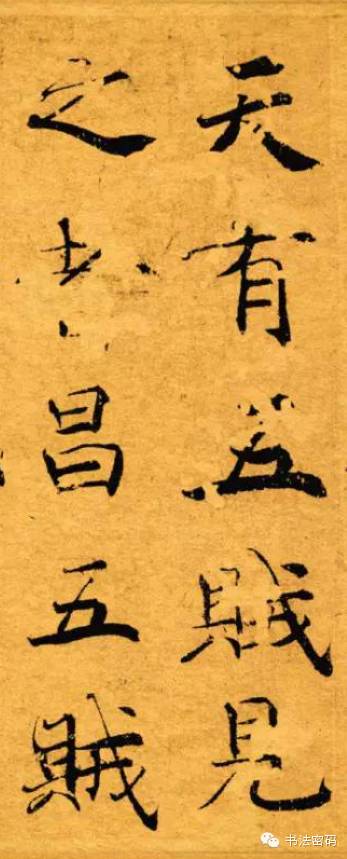 天有五賊見
之者昌五賊
书法密码